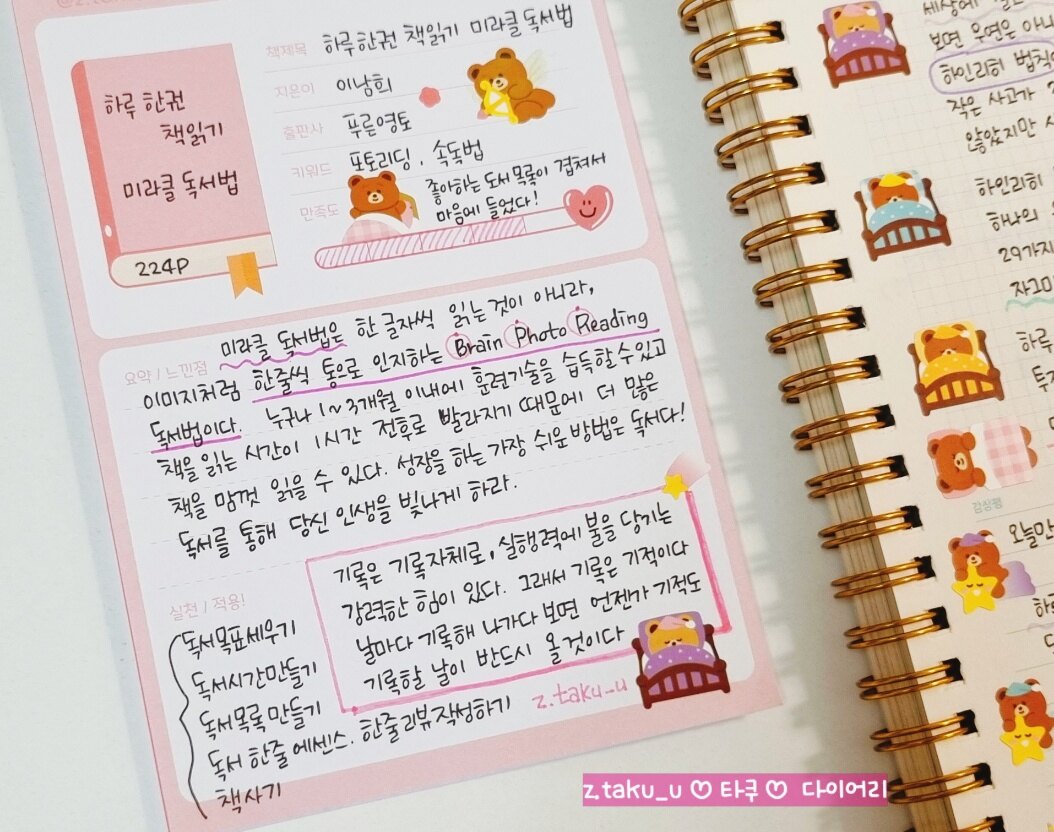 책제목 하루한권 책읽기 미라클 독서법
지은이 이남희
출판사 푸른영토
키워드 포토리딩, 속독법
만족도 좋아하는 도서목록이 겹쳐서
마음에 들었다!
하루 한권
책읽기
미라클 독서법
224P
요약 / 느낀점
미라클 독서법은 한 글자씩 읽는것이 아니라,
이미지처럼 한줄씩 통으로 인지하는 Brain Photo Reading
독서법이다. 누구나 1~3개월 이내에 훈련기술을 습득할수있고
책을 읽는 시간이 1시간 전후로 빨라지기 때문에 더 많은
책을 맘껏 읽을 수 있다. 성장을 하는 가장 쉬운방법은 독서다!
독서를 통해 당신 인생을 빛나게 하라.
기록은 기록자체로, 실행력에 불을 당기는
강력한 힘이 있다. 그래서 기록은 기적이다
날마다 기록해 나가다 보면 언젠가 기적도
기록할 날이 반드시 올것이다
실천 / 적용!
독서목표세우기
독서시간만들기
독서목록만들기
독서 한줄에센스. 한줄리뷰작성하기
책사기
z.taku_u
보면 우연은 아니
하인리히 법칙
작은 사고가
않았지만
하인리히
하나의
29가지
하루
감성평
오늘만
z.taku_u ♡ 타쿠 ♡ 다이어리